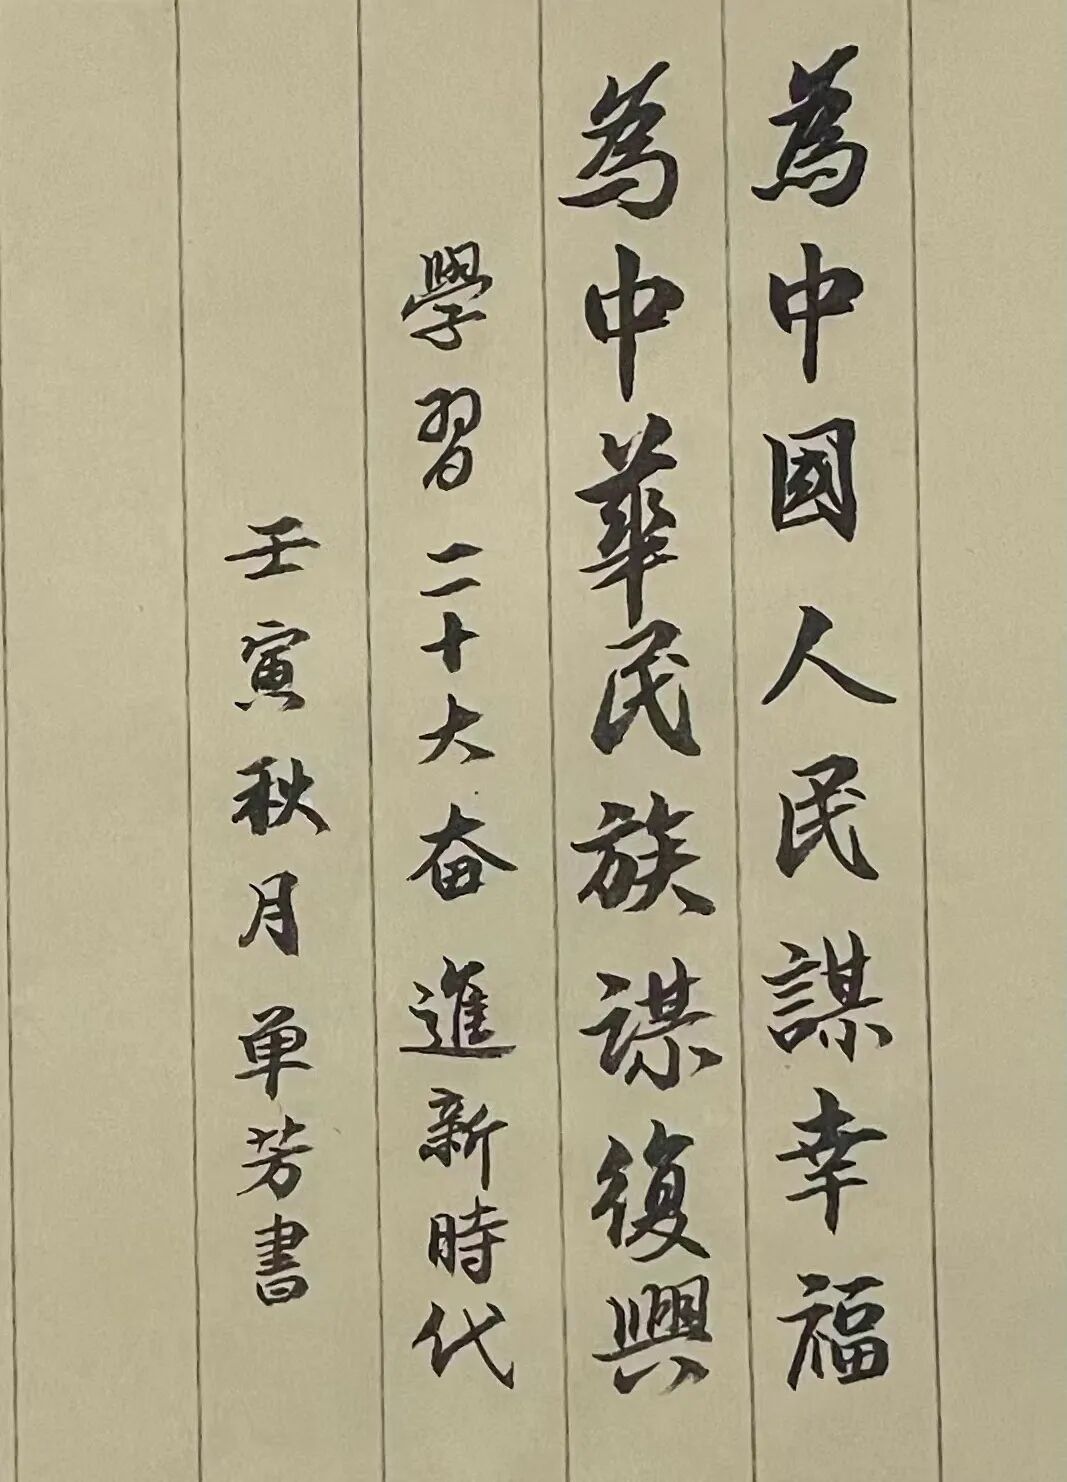 為中國人民謀幸福
為中華民族謀復興
學習二十大奋進新時代
壬寅秋月单芳書